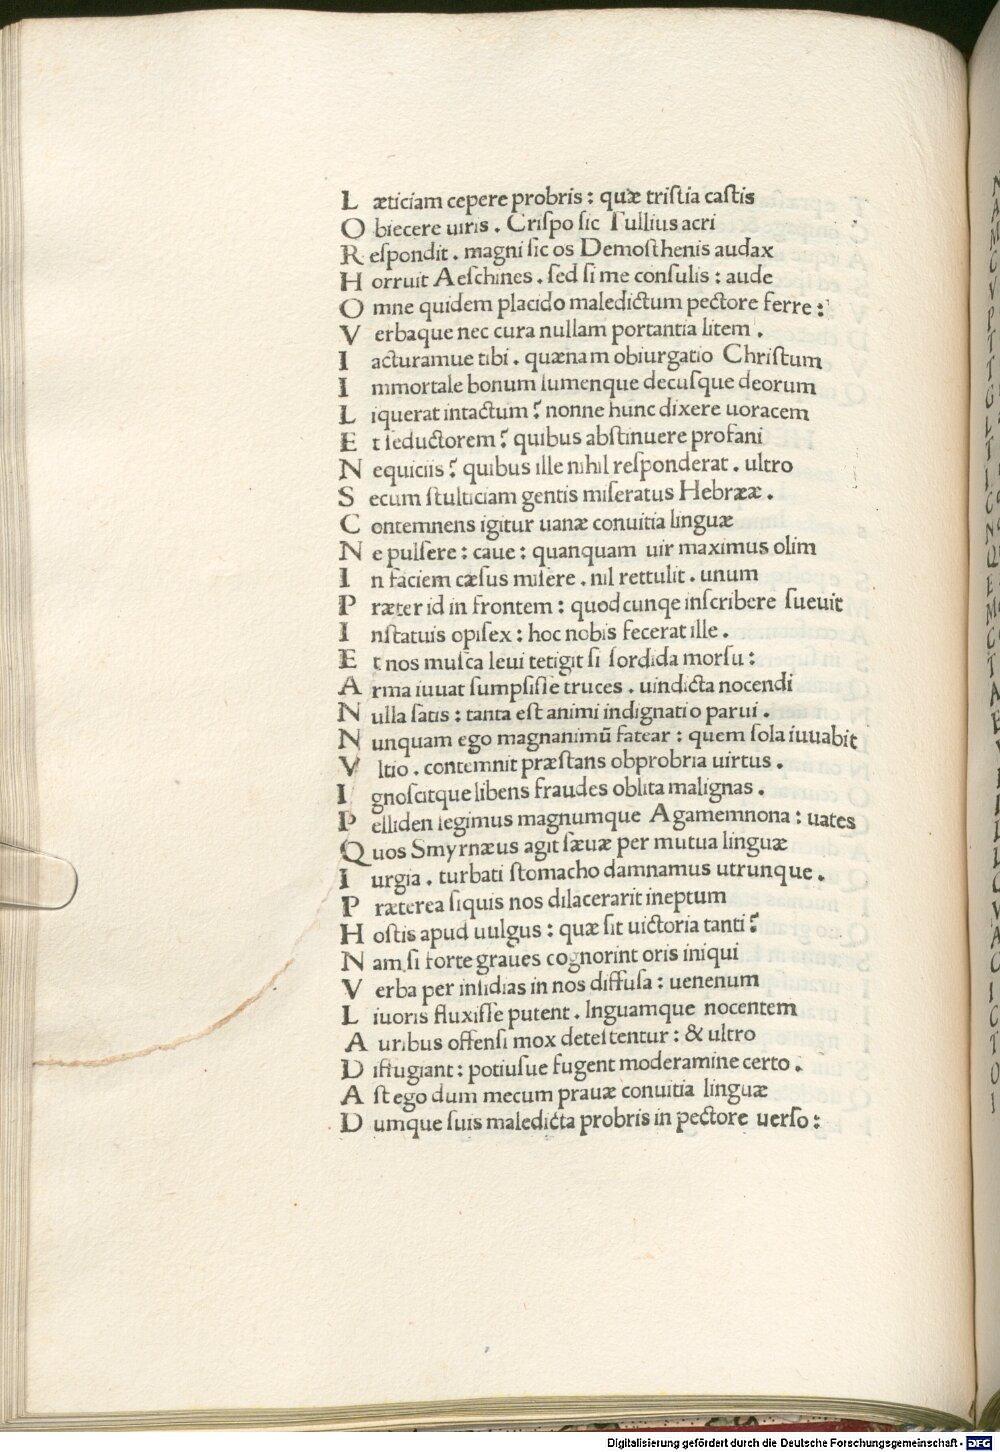 L æticiam cepere probris : quæ tristia castis
O biecere uiris . Crispo sic Tullius acri
R espondit . magni sic os Demosthenis audax
H orruit Aeschines . sed si me consulis : aude
O mne quidem placido maledictum pectore ferre :
V erbaque nec cura nullam portantia litem .
I acturamue tibi . quænam obiurgatio Christum
I mmortale bonum lumenque decusque deorum
L iquerat intactum ? nonne hunc dixere uoracem
E t seductorem ? quibus abstinuere profani
N equiciis ? quibus ille nihil responderat . ultro
S ecum stulticiam gentis miseratus Hebrææ .
C ontemnens igitur uanæ conuitia linguæ
N e pulsere : caue : quanquam uir maximus olim
I n faciem cæsus misere . nil rettulit . unum
P ræter id in frontem : quodcunqe inscribere sueuit
I nstatuis opisex : hoc nobis fecerat ille .
E t nos musca leui tetigit si sordida morsu :
A rma iuuat sumpsisse truces . uindicta nocendi
N ulla satis : tanta est animi indignatio parui .
N unquam ego magnanimū fatear : quem sola iuuabit
V ltio . contemnit præstans obprobria uirtus .
I gnoscitque libens fraudes oblita malignas .
P elliden legimus magnumque Agamemnona : uates
Q uos Smyrnæus agit sæuæ per mutua linguæ
I urgia . turbati stomacho damnamus utrunque .
P ræterea siquis nos dilacerarit ineptum
H ostis apud uulgus : quæ sit uictoria tanti ?
N am si forte graues cognorint oris iniqui
V erba per insidias in nos diffusa : uenenum
L iuoris fluxisse putent . lnguamque nocentem
A uribus offensi mox detestentur : & ultro
D iffugiant : potiusue fugent moderamine certo .
A st ego dum mecum prauæ conuitia linguæ
D umque suis maledicta probris in pectore uerso :
Digitalisierung gefördert durch die Deutsche Forschungsgemeinschaft - DFG